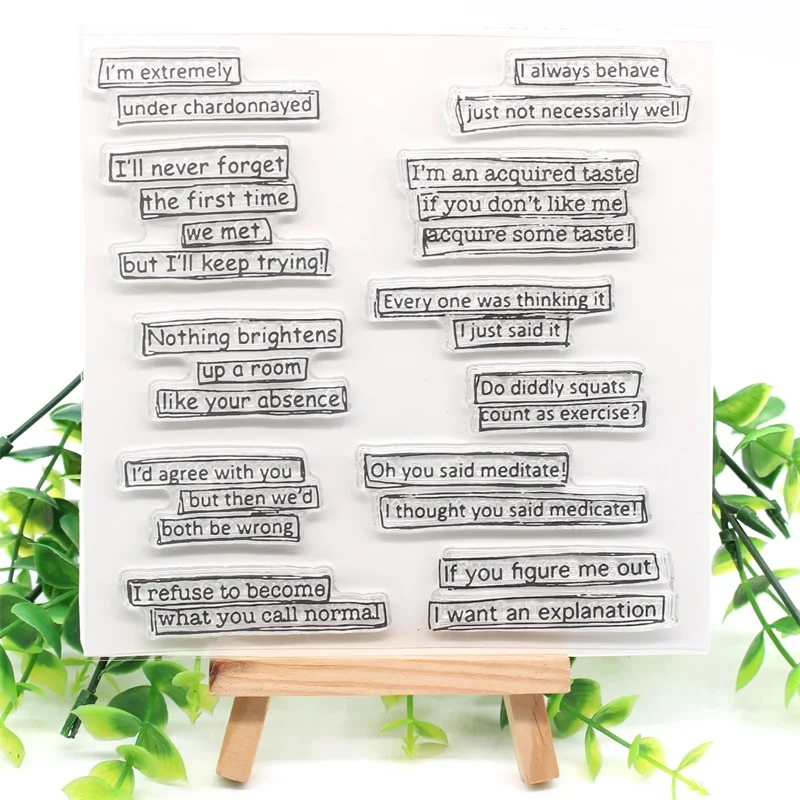 I'm extremely
under chardonnayed
I'll never forget
the first time
we met,
but I'll keep trying!
Nothing brightens
up a room
like your absence
I'd agree with you
but then we'd
both be wrong
I refuse to become
what you call normal
I always behave
just not necessarily well
I'm an acquired taste
if you don't like me
acquire some taste!
Every one was thinking it
I just said it
Do diddly squats
count as exercise?
Oh you said meditate!
I thought you said medicate!
If you figure me out
I want an explanation